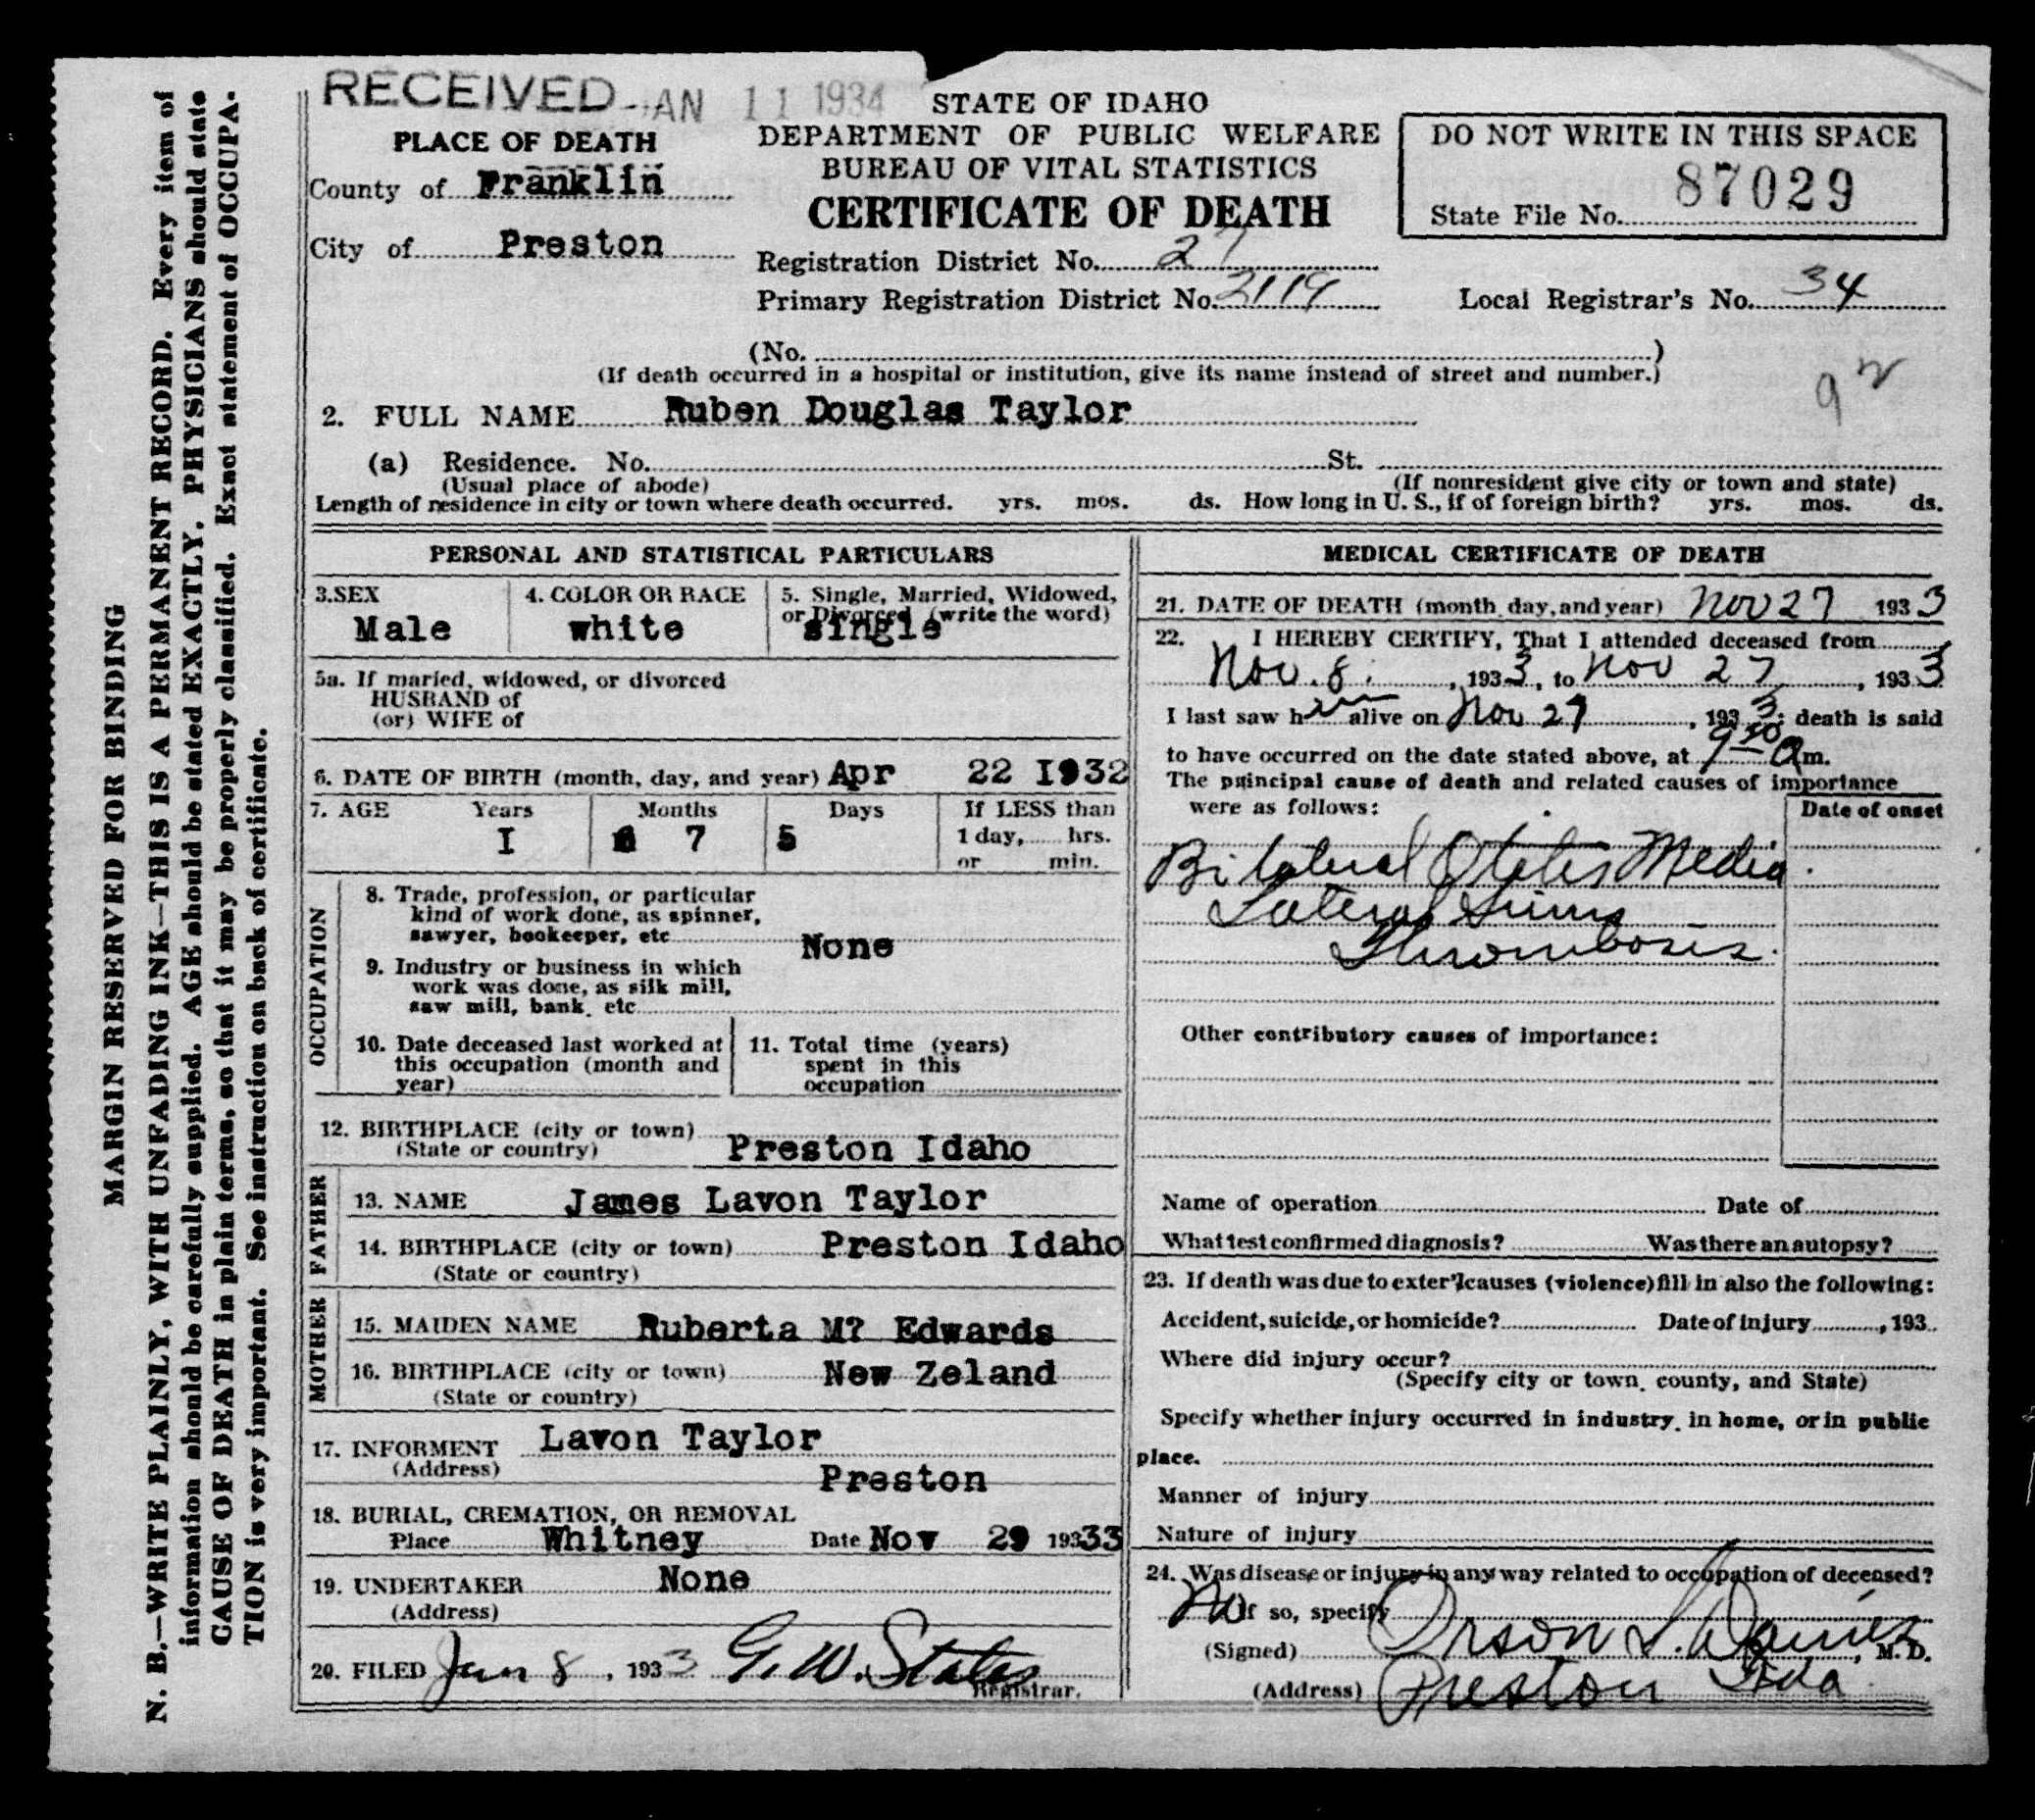 RECEIVED JAN 11 1934
STATE OF IDAHO
DEPARTMENT OF PUBLIC WELFARE
BUREAU OF VITAL STATISTICS
CERTIFICATE OF DEATH
PLACE OF DEATH
County of Franklin
City of Preston
DO NOT WRITE IN THIS SPACE
87029
State File No.
Registration District No. 27
Primary Registration District No. 2119
Local Registrar's No. 34
(No. )
(If death occurred in a hospital or institution, give its name instead of street and number.)
2. FULL NAME Ruben Douglas Taylor
(a) Residence. No. St.
(Usual place of abode) (If nonresident give city or town and state)
Length of residence in city or town where death occurred. yrs. mos. ds. How long in U. S., if of foreign birth? yrs. mos. ds.
PERSONAL AND STATISTICAL PARTICULARS
3.SEX
Male
4. COLOR OR RACE
white
5. Single, Married, Widowed,
or Divorced (write the word)
single
5a. If maried, widowed, or divorced
HUSBAND of
(or) WIFE of
6. DATE OF BIRTH (month, day, and year) Apr 22 I932
7. AGE Years Months Days If LESS than
I 7 5 1 day, hrs.
or min.
OCCUPATION
8. Trade, profession, or particular
kind of work done, as spinner,
sawyer, bookeeper, etc
None
9. Industry or business in which
work was done, as silk mill,
saw mill, bank, etc
10. Date deceased last worked at
this occupation (month and
year)
11. Total time (years)
spent in this
occupation
12. BIRTHPLACE (city or town)
(State or country) Preston Idaho
FATHER
13. NAME James Lavon Taylor
14. BIRTHPLACE (city or town) Preston Idaho
(State or country)
MOTHER
15. MAIDEN NAME Ruberta M? Edwards
16. BIRTHPLACE (city or town) New Zeland
(State or country)
17. INFORMENT Lavon Taylor
(Address) Preston
18. BURIAL, CREMATION, OR REMOVAL
Place Whitney Date Nov 29 19333
19. UNDERTAKER None
(Address)
20. FILED Jan 8, 1933 G. W. States
Registrar.
MEDICAL CERTIFICATE OF DEATH
21. DATE OF DEATH (month day, and year) Nov 27 1933
22. I HEREBY CERTIFY, That I attended deceased from
Nov. 8. , 1933, to Nov 27, 1933
I last saw him alive on Nov 27, 1933; death is said
to have occurred on the date stated above, at 9 30 a m.
The principal cause of death and related causes of importance
were as follows: Date of onset
Bilateral Otitis Media
Lateral Sinus
Thrombosis.
Other contributory causes of importance:
Name of operation Date of
What test confirmed diagnosis? Was there an autopsy?
23. If death was due to exter'l causes (violence) fill in also the following:
Accident, suicide, or homicide? Date of injury , 193
Where did injury occur?
(Specify city or town, county, and State)
Specify whether injury occurred in industry, in home, or in public
place.
Manner of injury
Nature of injury
24. Was disease or injury in any way related to occupation of deceased?
No If so, specify
(Signed) Orson M. D.
(Address) Preston Ida
MARGIN RESERVED FOR BINDING
N. B.—WRITE PLAINLY, WITH UNFADING INK—THIS IS A PERMANENT RECORD. Every item of
information should be carefully supplied. AGE should be stated EXACTLY. PHYSICIANS should state
CAUSE OF DEATH in plain terms, so that it may be properly classified. Exact statement of OCCUPA-
TION is very important. See instruction on back of certificate.